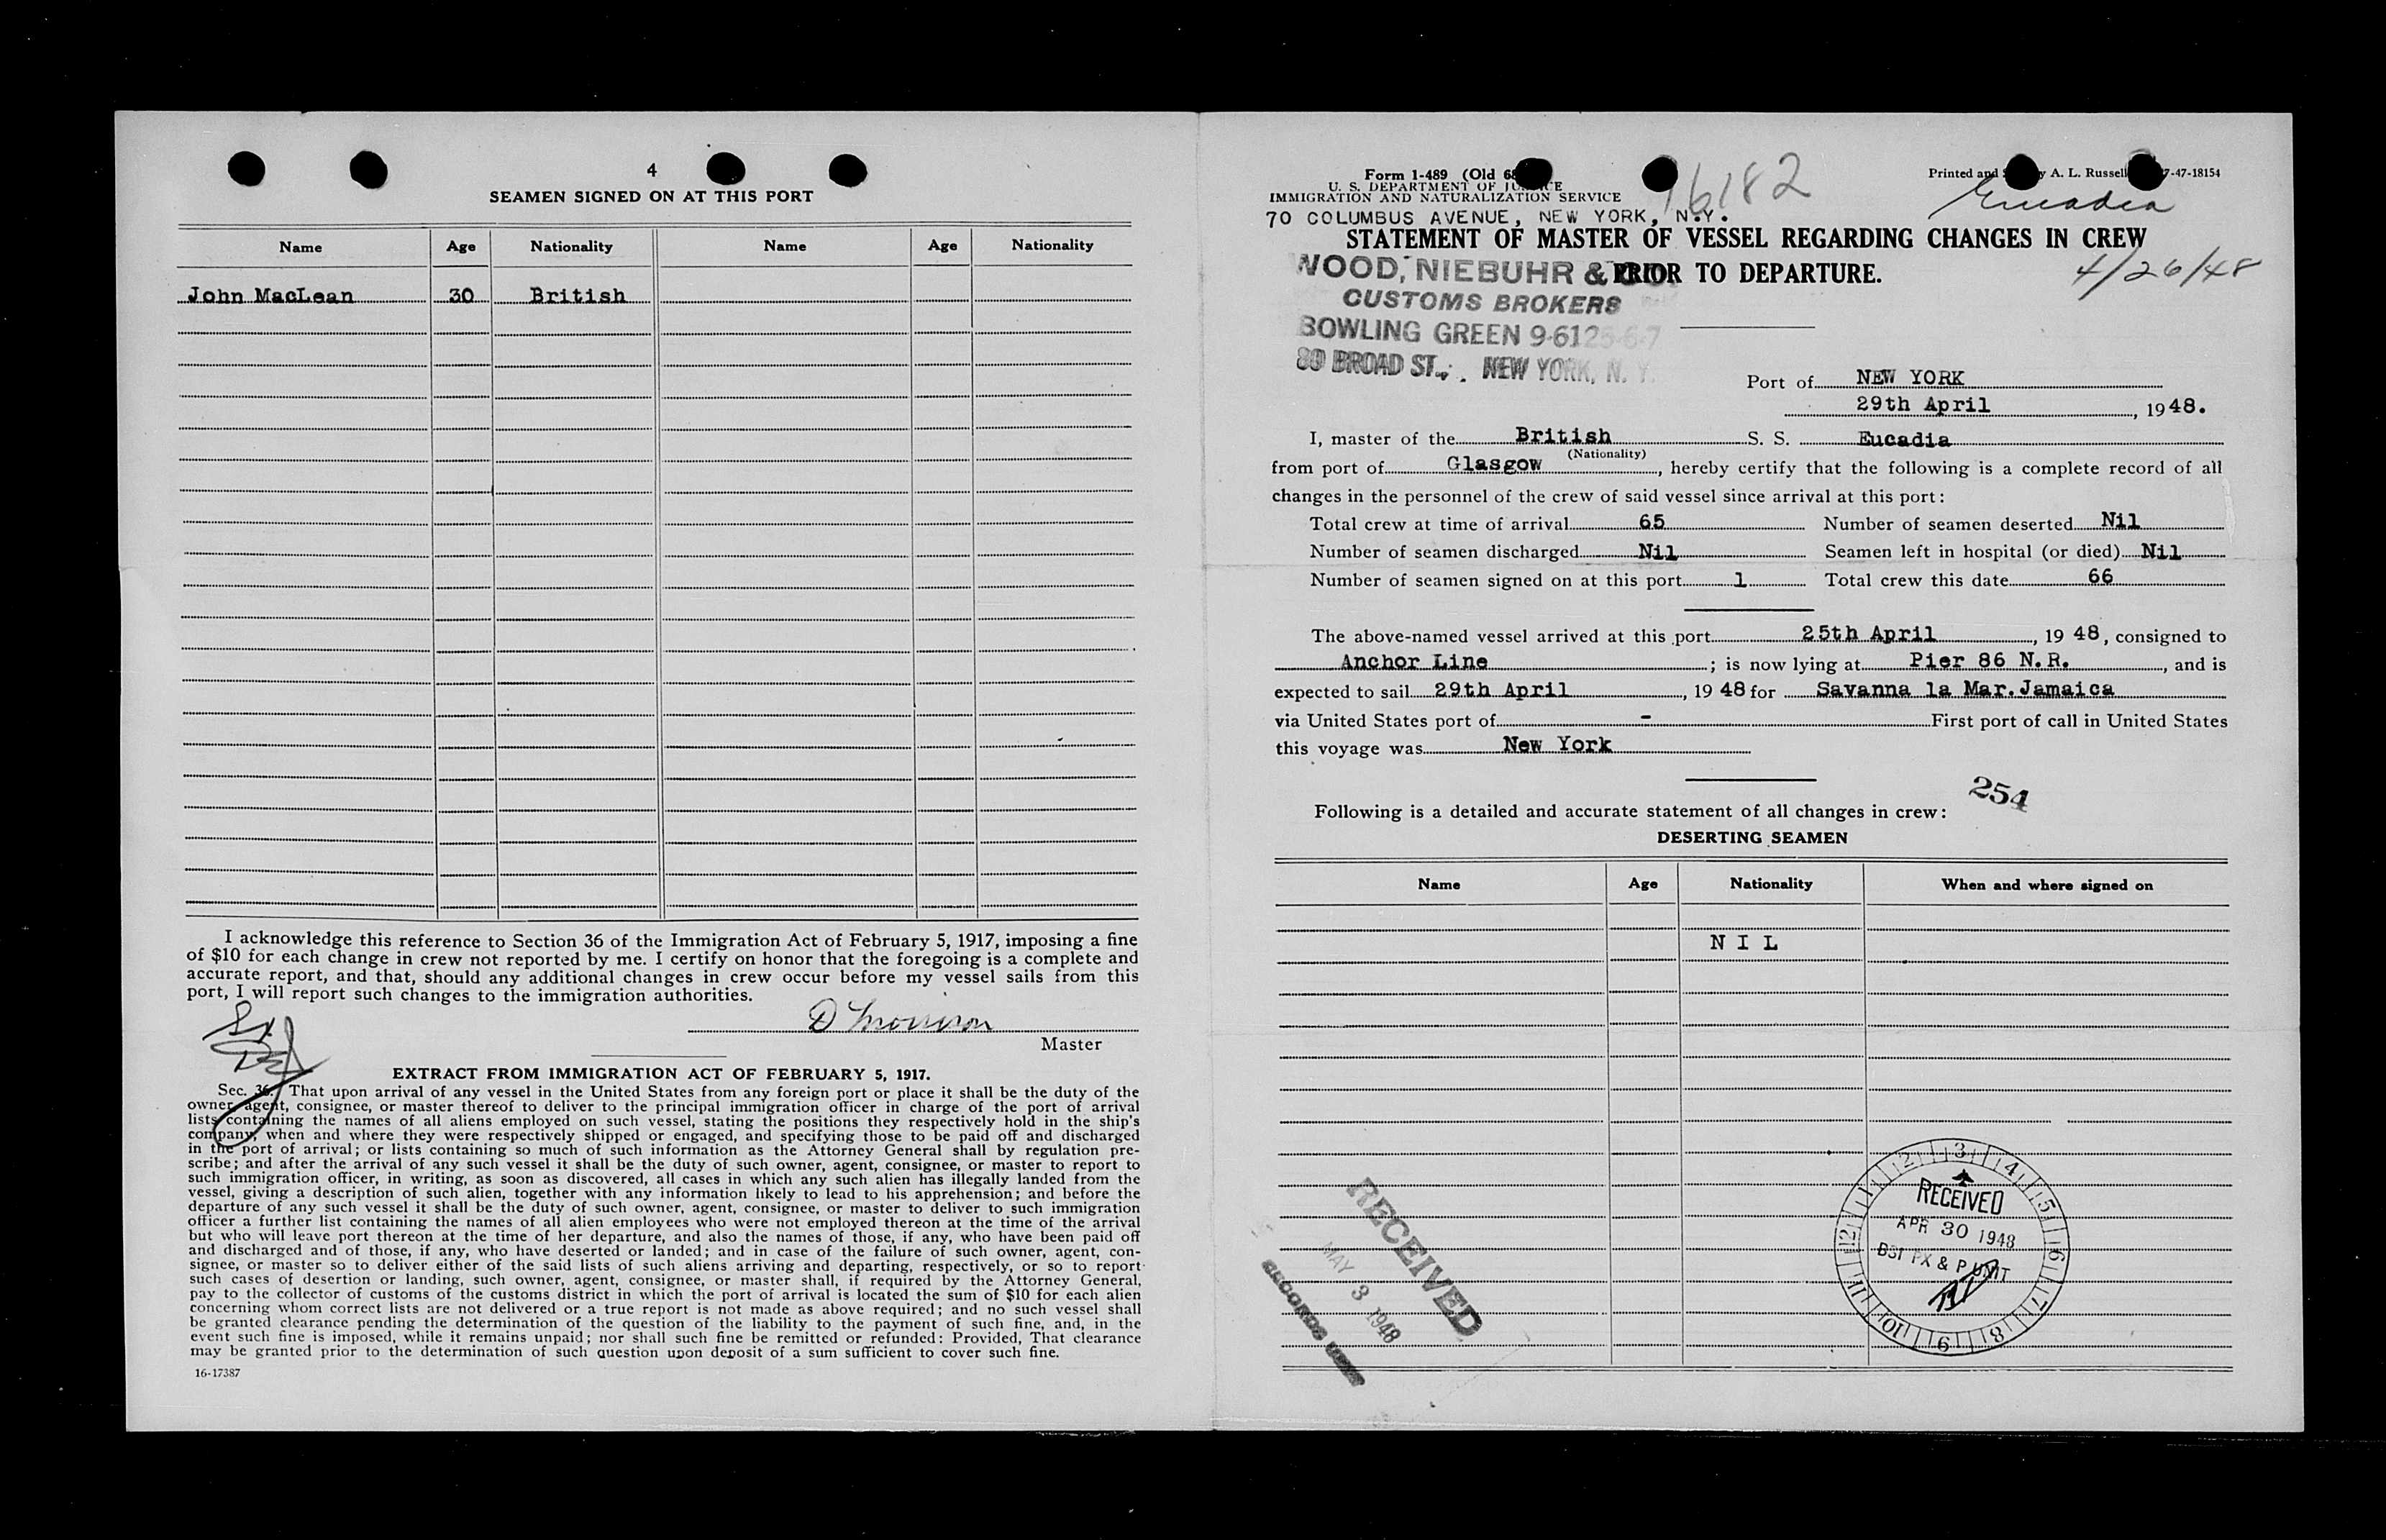 4
SEAMEN SIGNED ON AT THIS PORT
Name Age Nationality Name Age Nationality
John MacLean 30 British
I acknowledge this reference to Section 36 of the Immigration Act of February 5, 1917, imposing a fine
of $10 for each change in crew not reported by me. I certify on honor that the foregoing is a complete and
accurate report, and that, should any additional changes in crew occur before my vessel sails from this
port, I will report such changes to the immigration authorities.
D Morrison
Master
EXTRACT FROM IMMIGRATION ACT OF FEBRUARY 5, 1917.
Sec. 36. That upon arrival of any vessel in the United States from any foreign port or place it shall be the duty of the
owner, agent, consignee, or master thereof to deliver to the principal immigration officer in charge of the port of arrival
lists containing the names of all aliens employed on such vessel, stating the positions they respectively hold in the ship's
company, when and where they were respectively shipped or engaged, and specifying those to be paid off and discharged
in the port of arrival; or lists containing so much of such information as the Attorney General shall by regulation pre-
scribe; and after the arrival of any such vessel it shall be the duty of such owner, agent, consignee, or master to report to
such immigration officer, in writing, as soon as discovered, all cases in which any such alien has illegally landed from the
vessel, giving a description of such alien, together with any information likely to lead to his apprehension; and before the
departure of any such vessel it shall be the duty of such owner, agent, consignee, or master to deliver to such immigration
officer a further list containing the names of all alien employees who were not employed thereon at the time of the arrival
but who will leave port thereon at the time of her departure, and also the names of those, if any, who have been paid off
and discharged and of those, if any, who have deserted or landed; and in case of the failure of such owner, agent, con-
signee, or master so to deliver either of the said lists of such aliens arriving and departing, respectively, or so to report
such cases of desertion or landing, such owner, agent, consignee, or master shall, if required by the Attorney General,
pay to the collector of customs of the customs district in which the port of arrival is located the sum of $10 for each alien
concerning whom correct lists are not delivered or a true report is not made as above required; and no such vessel shall
be granted clearance pending the determination of the question of the liability to the payment of such fine, and, in the
event such fine is imposed, while it remains unpaid; nor shall such fine be remitted or refunded: Provided, That clearance
may be granted prior to the determination of such question upon deposit of a sum sufficient to cover such fine.
16-17387
Form 1-489 (Old 68
U. S. DEPARTMENT OF JUSTICE
IMMIGRATION AND NATURALIZATION SERVICE
70 COLUMBUS AVENUE, NEW YORK, N.Y.
16182
Printed and A. L. Russell 7-47-18154
Eucadia
STATEMENT OF MASTER OF VESSEL REGARDING CHANGES IN CREW
PRIOR TO DEPARTURE.
4/26/48
WOOD, NIEBUHR & CO.
CUSTOMS BROKERS
BOWLING GREEN 9-6125-6-7
80 BROAD ST., NEW YORK, N. Y.
Port of NEW YORK
29th April, 1948.
I, master of the British S. S. Eucadia
(Nationality)
from port of Glasgow, hereby certify that the following is a complete record of all
changes in the personnel of the crew of said vessel since arrival at this port:
Total crew at time of arrival 65 Number of seamen deserted Nil
Number of seamen discharged Nil Seamen left in hospital (or died) Nil
Number of seamen signed on at this port 1 Total crew this date 66
The above-named vessel arrived at this port 25th April, 1948, consigned to
Anchor Line; is now lying at Pier 86 N.R., and is
expected to sail 29th April, 1948 for Savanna la Mar. Jamaica
via United States port of - First port of call in United States
this voyage was New York
254
Following is a detailed and accurate statement of all changes in crew:
DESERTING SEAMEN
Name Age Nationality When and where signed on
N I L
RECEIVED
MAY 3 1948
RECORDS
1 2 3 4 5 6 7 8 9 10 11 12
RECEIVED
APR 30 1948
BSI PX & P UNIT